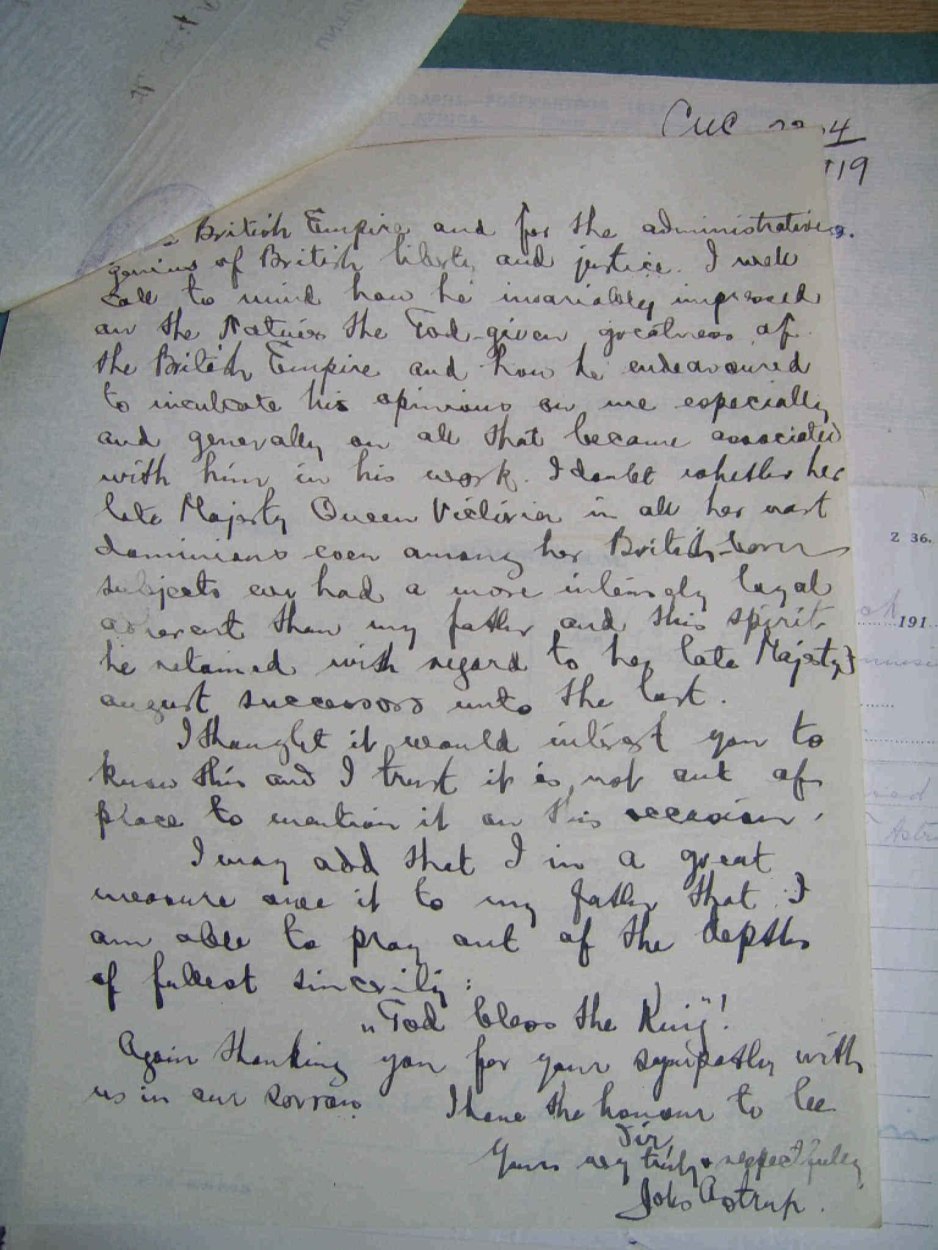 CNC
4
119
British Empire and for the administrative
genius of British liberty and justice. I well
call to mind how he invariably impressed
on the Natives the God-given greatness of
the British Empire and how he endeavoured
to inculcate his opinions on me especially
and generally on all that became associated
with him in his work. I doubt whether her
late Majesty Queen Victoria in all her vast
dominions even among her British-born
subjects ever had a more intensely loyal
adherent than my father and this spirit
he retained with regard to her late Majesty's
august successors unto the last.
I thought it would interest you to
know this and I trust it is not out of
place to mention it on this occasion.
I may add that I in a great
measure owe it to my father that I
am able to pray out of the depths
of fullest sincerity:
„God bless the King"!
Again thanking you for your sympathy with
us in our sorrow
I have the honour to be
Sir,
Yours very truly & respectfully
Johs Astrup.
Z 36.
191